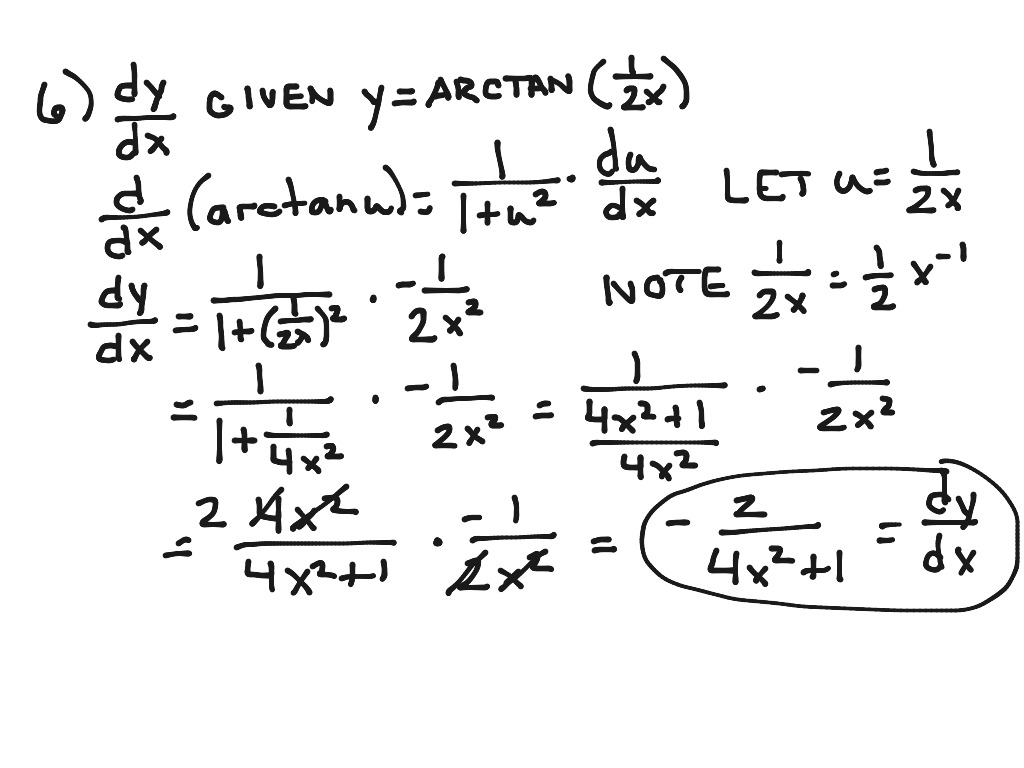 6) dy/dx GIVEN y = ARCTAN (1/2x)
d/dx (arctan u) = 1/(1+u²) · du/dx LET u = 1/2x
dy/dx = 1/(1+(1/2x)²) · -1/2x² NOTE 1/2x = 1/2 x⁻¹
= 1/(1+1/4x²) · -1/2x² = 1/((4x²+1)/4x²) · -1/2x²
= 2 4x²/(4x²+1) · -1/2x² = -2/(4x²+1) = dy/dx